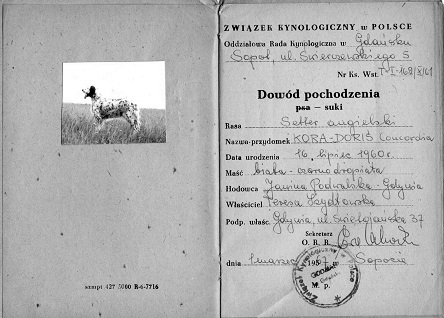 szmpt 427 5000 R-6-7716
ZWIĄZEK KYNOLOGICZNY w POLSCE
Oddziałowa Rada Kynologiczna w Gdańsku
Sopot, ul. Świerczewskiego 5
Nr Ks. Wst. T-I-168/X/61
Dowód pochodzenia
psa — suki
Rasa Setter angielski
Nazwa-przydomek KORA-DORIS Concordia
Data urodzenia 16 lipiec 1960 r.
Maść biała-czarno dropiata
Hodowca Janina Podralska-Gdynia
Właściciel Teresa Szydłowska
Podp. właśc. Gdynia, ul. Świętojańska 37
Sekretarz
O. R. R.
dnia 1 marzec 195 Sopocie
M. p.
Związek Kynologiczny w Polsce